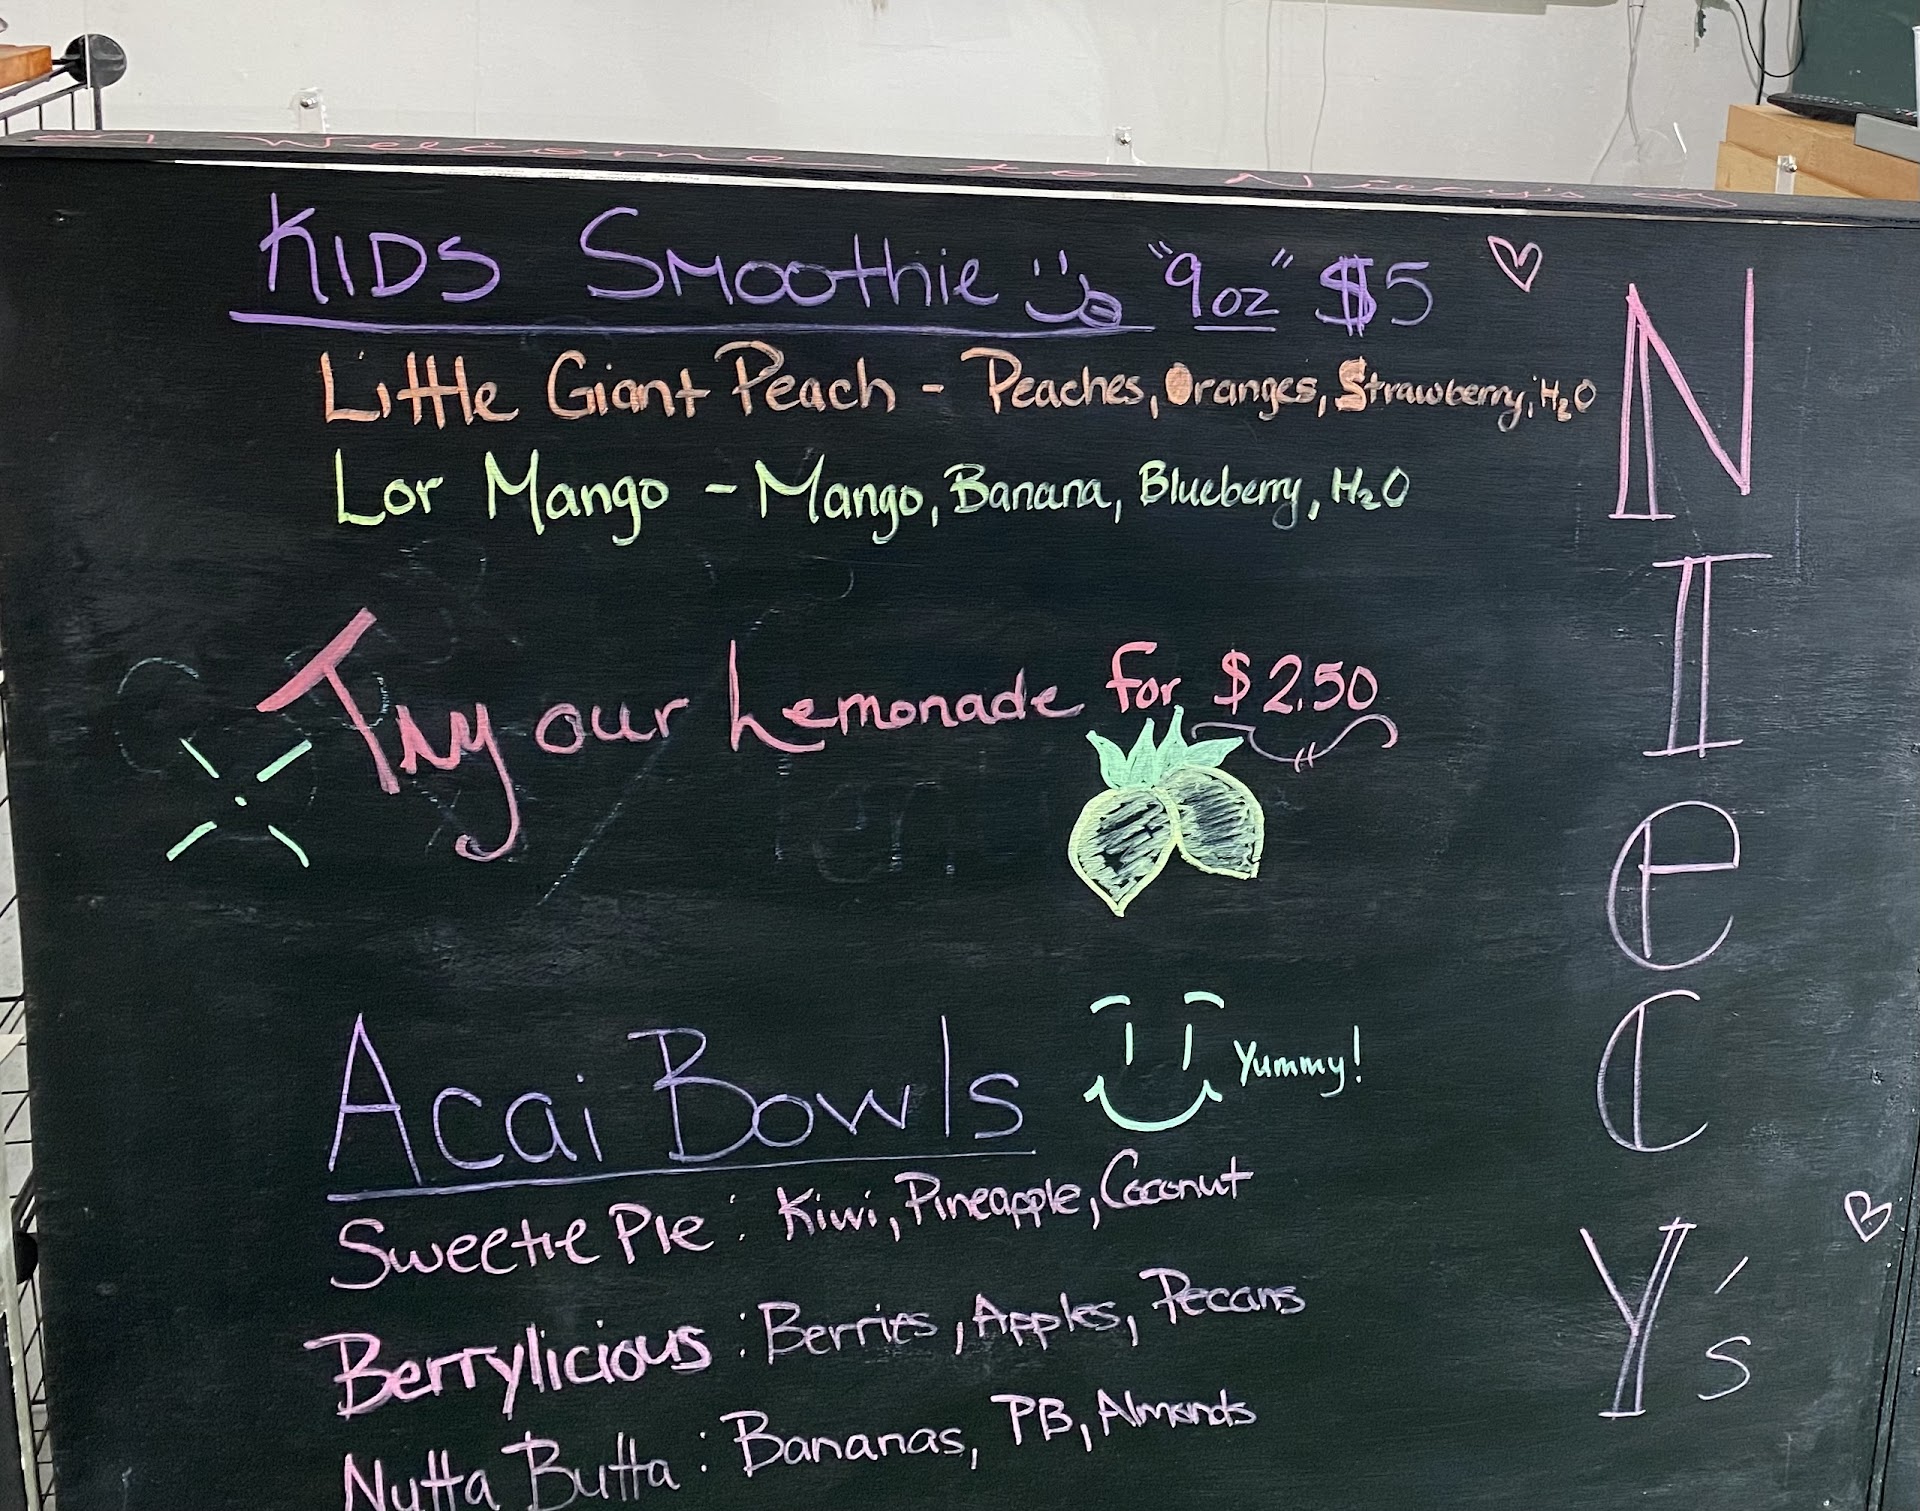 Welcome to Niecy's
KIDS Smoothie "9oz" $5
Little Giant Peach - Peaches, Oranges, Strawberry, H₂O
Lor Mango - Mango, Banana, Blueberry, H₂O
Try our Lemonade for $2.50
Acai Bowls
Yummy!
Sweetie Pie: Kiwi, Pineapple, Coconut
Berrylicious: Berries, Apples, Pecans
Nutta Butta: Bananas, PB, Almonds
NIeCY's